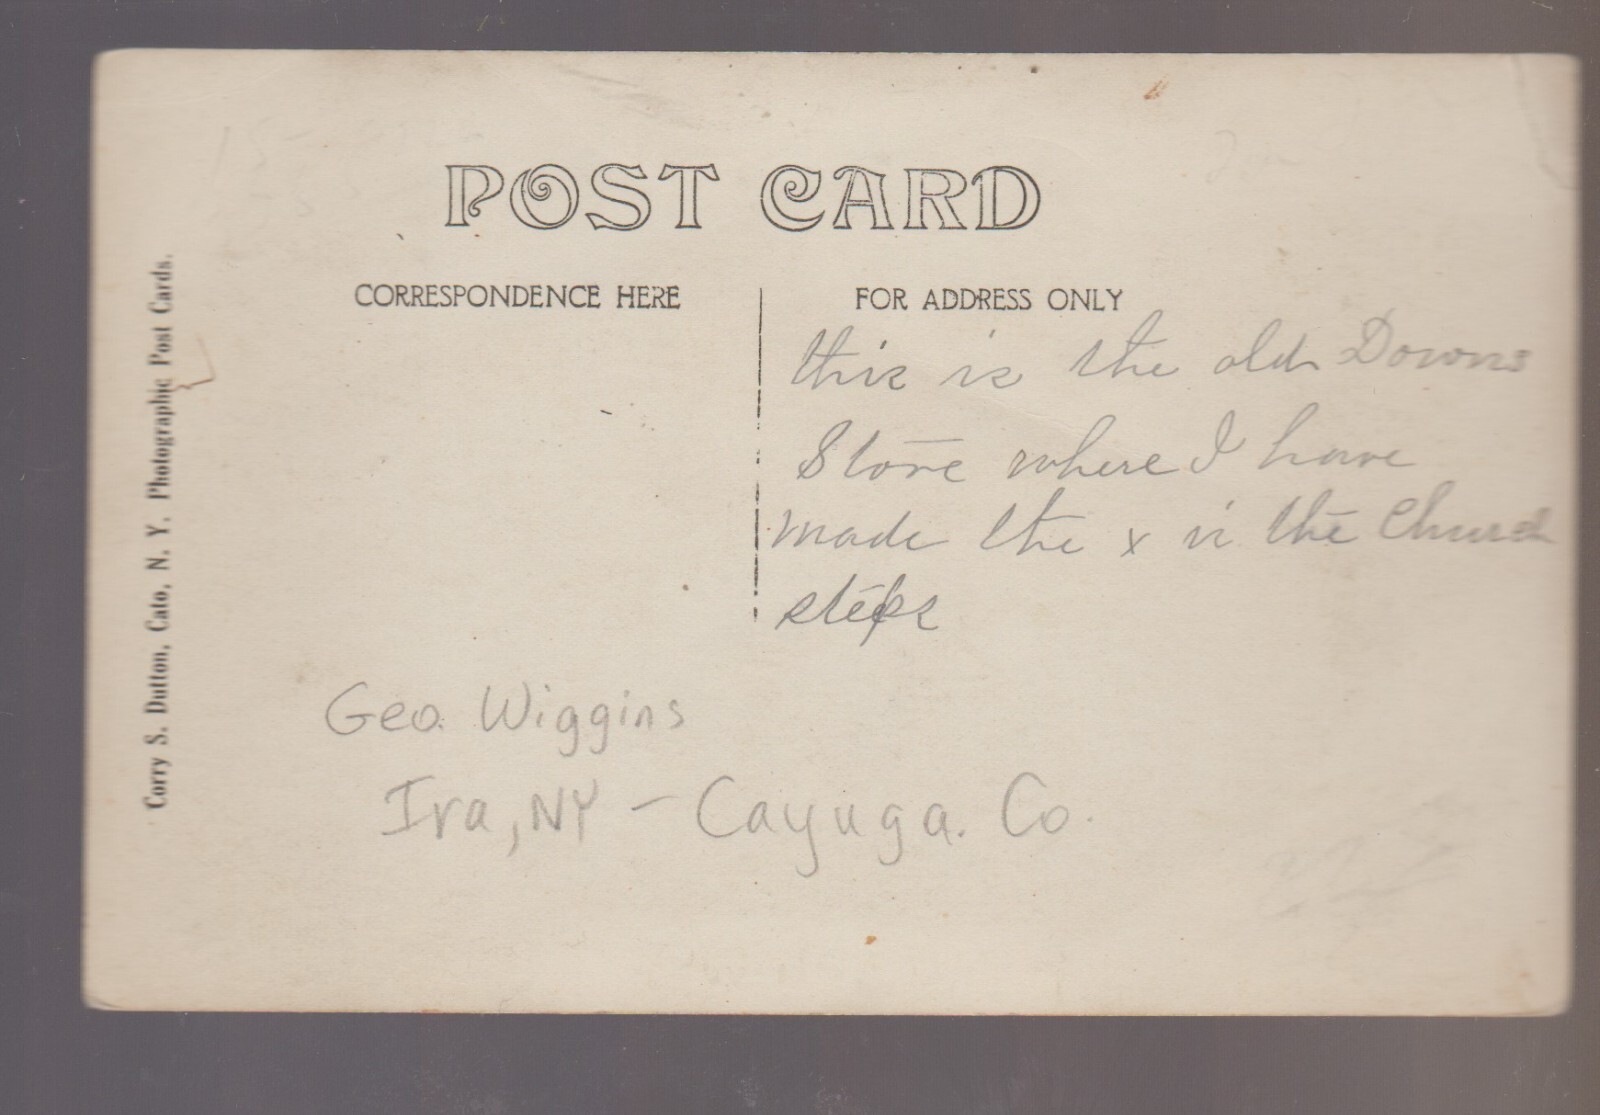 POST CARD
CORRESPONDENCE HERE
FOR ADDRESS ONLY
this is the old Downs
Store where I have
made the x is the Church
steps
Geo. Wiggins
Ira, NY - Cayuga. Co.
Corry S. Dutton, Cato, N. Y. Photographic Post Cards.